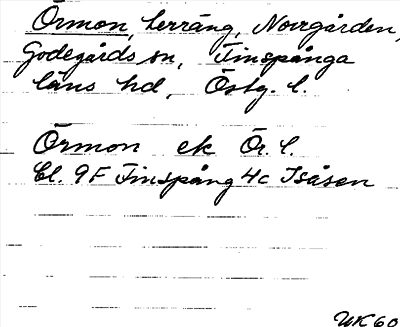 Örmon, terräng, Norrgården,
Godegårds sn, Finspånga
läns hd, Östg. l.
Örmon ek Ör. l.
Bl. 9F Finspång 4c Isåsen
WK 60